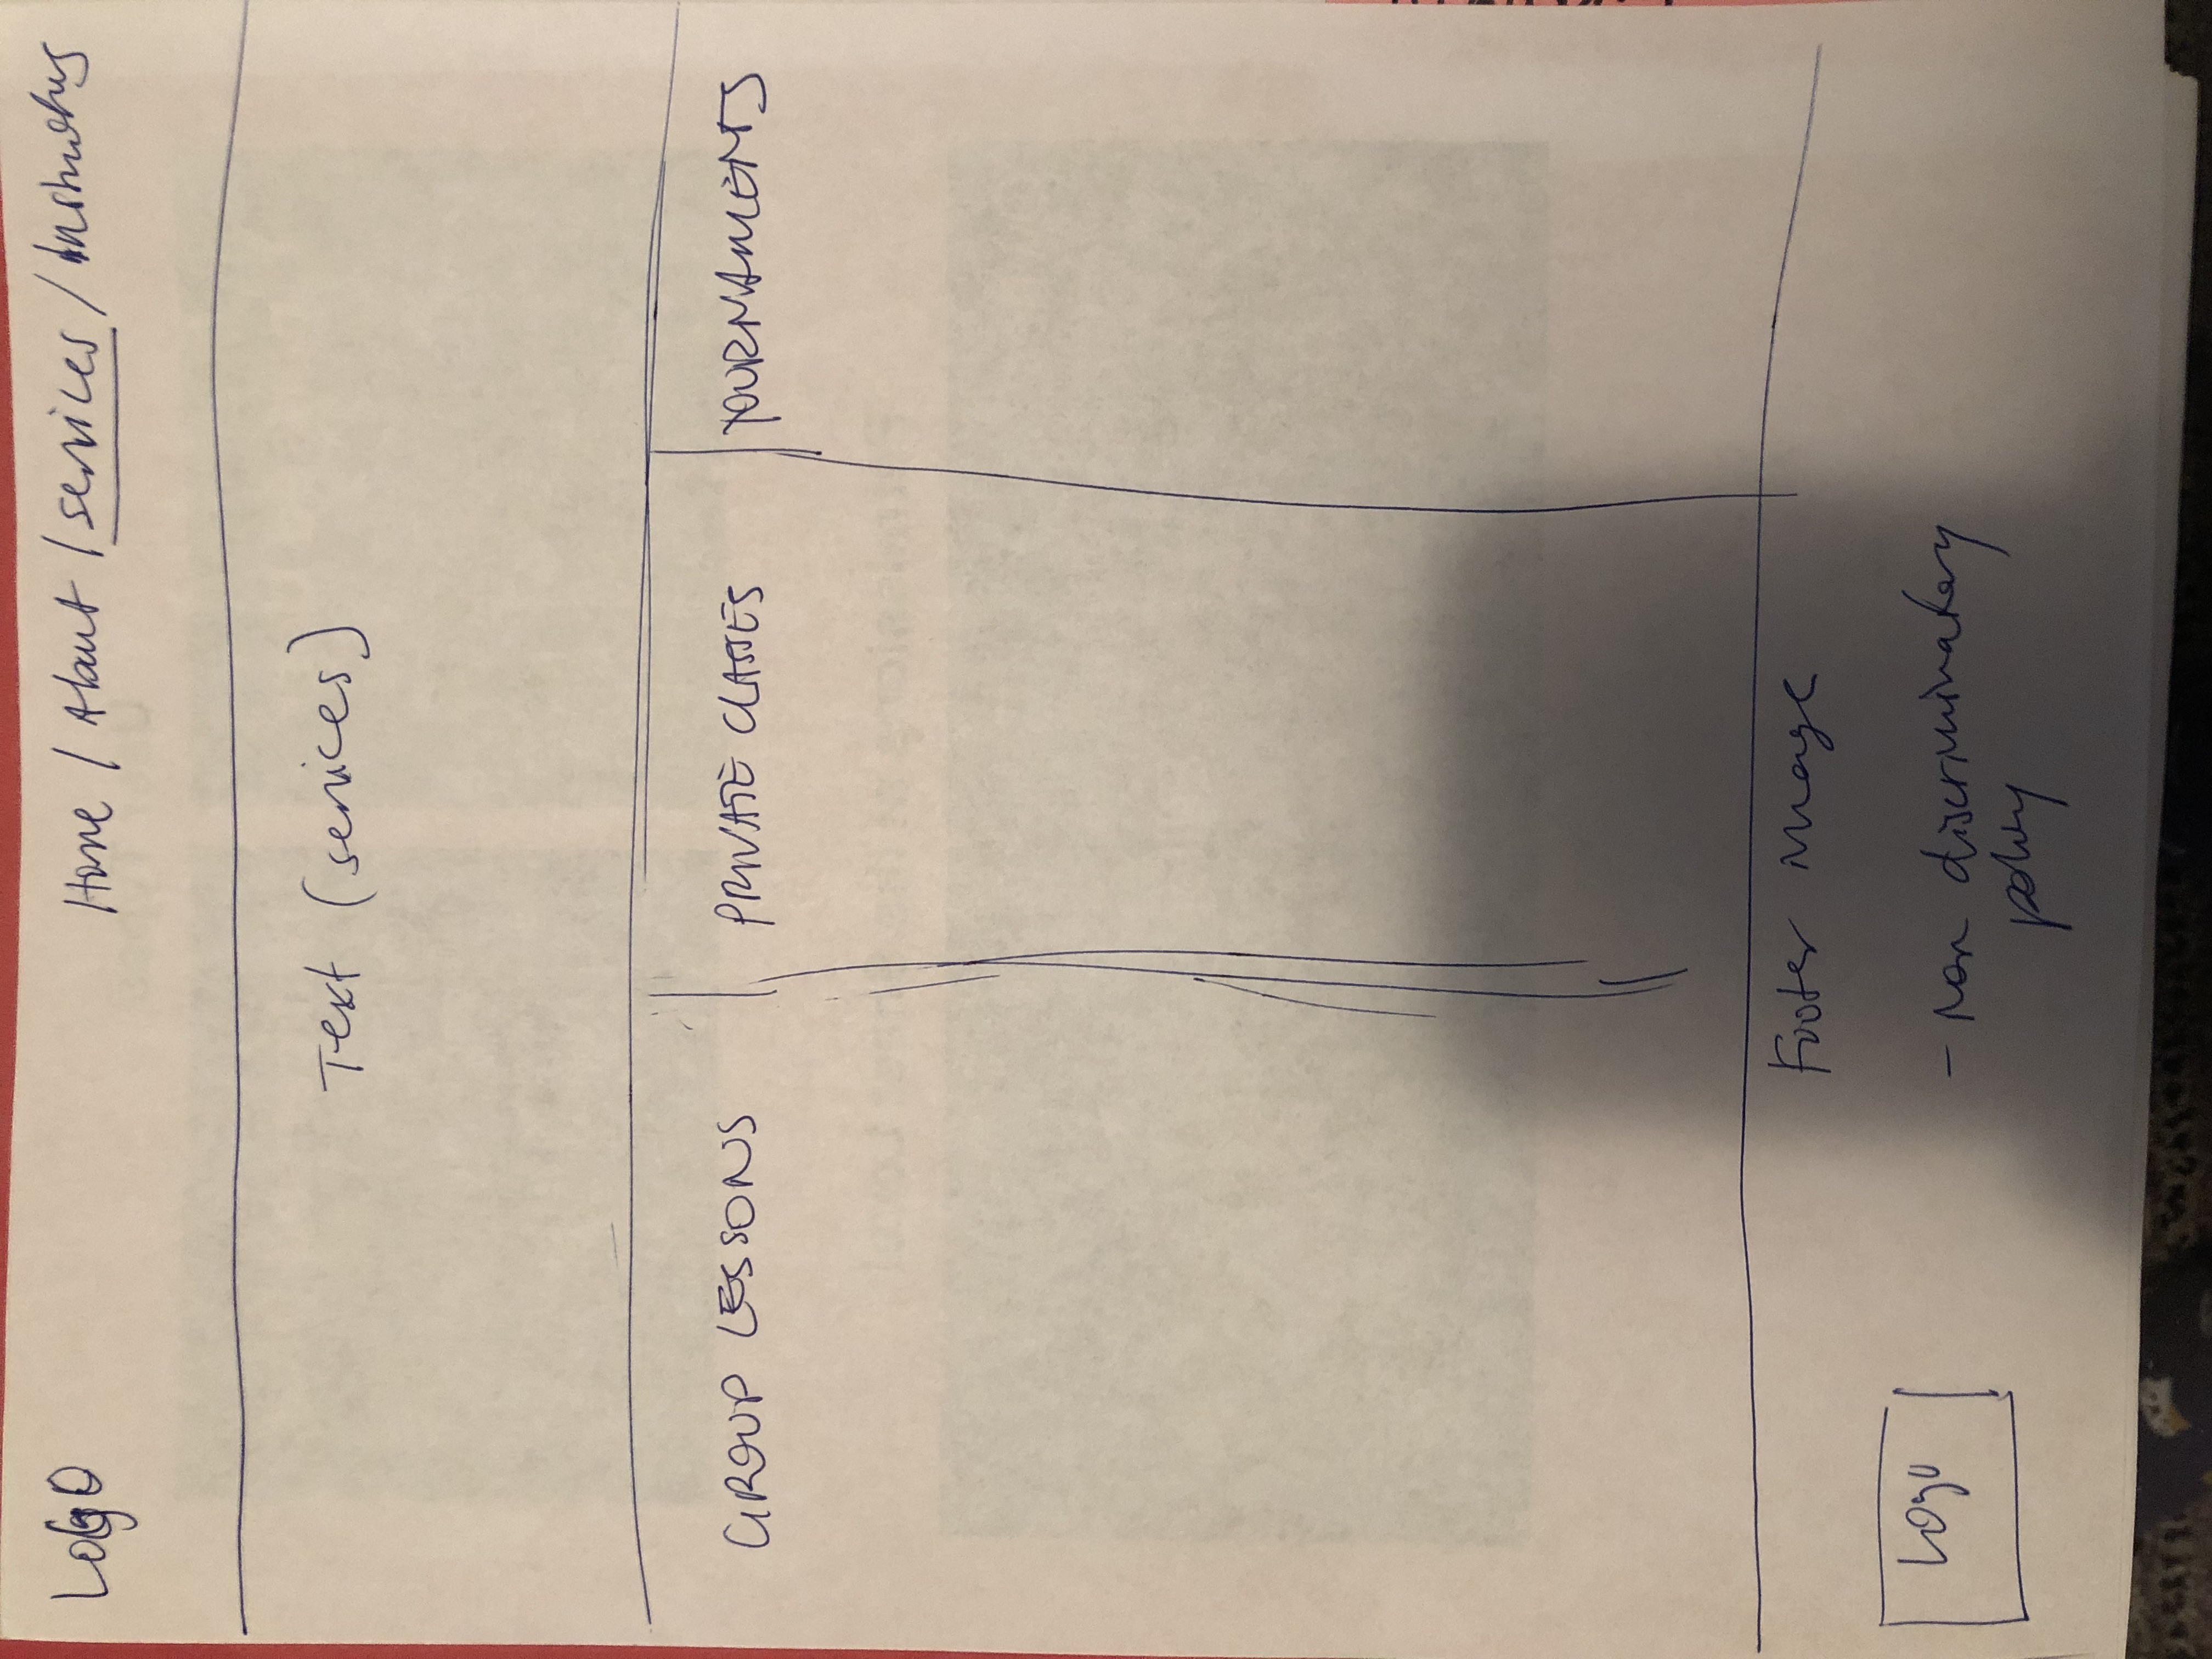 Logo
Home / About / services / Instructors
Text (services)
GROUP LESSONS
PRIVATE CLASSES
TOURNAMENTS
Footer image
Logo
- non discriminatory
policy